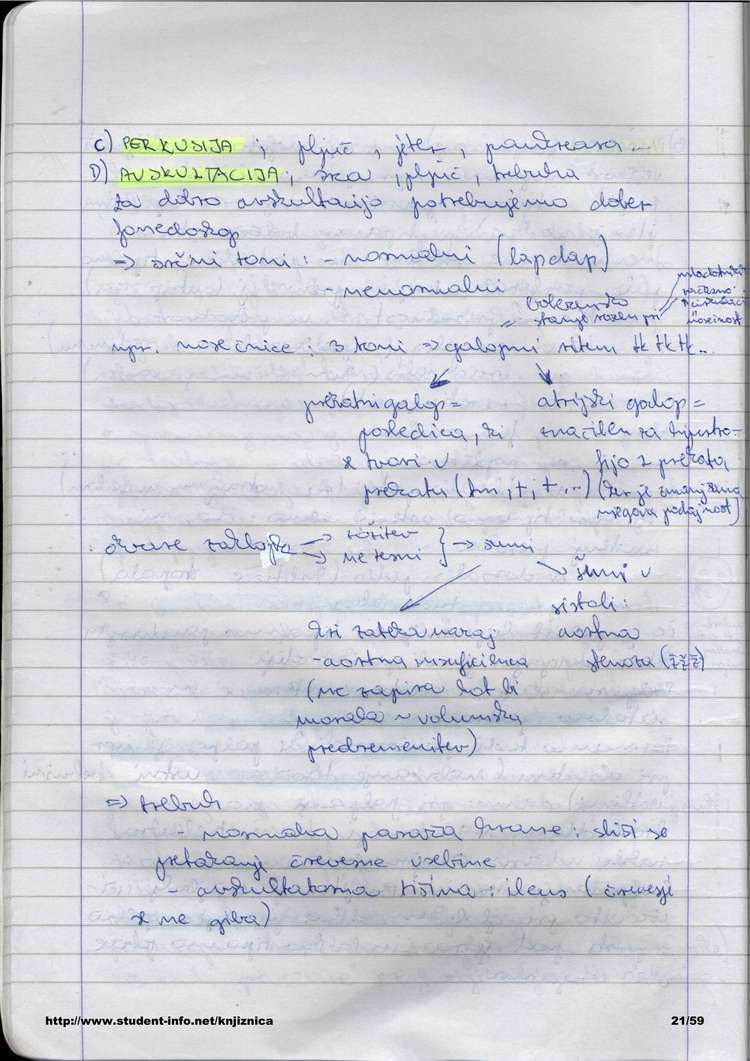 C) PERKUSIJA ; pljuč, jeter, pankreasa...
D) AVSKULTACIJA; srca, pljuč, trebuha
za dobro avskultacijo potrebujemo dober
fonedoskop
=> srčni toni : - normalni (lapdap)
- nenormalni
bolezensko
stanje razen pri
mladostniki
nosečnost
npr. nosečnice : 3 toni => galopni ritem tk tk tk..
prekatni galop =
posledica, ki
v
prekatu
atrijski galop =
značilen za hipertro-
fijo z prekata
(ker je zmanjšana
njegova podajnost)
okvare zaklopk -> zožitev
-> ne tesni } -> šumi
kri zateka nazaj
- aortna insuficienca
(ne zapira kot bi
morala -> volumska
predobremenitev)
šumi v
sistoli :
aortna
stenoza
=> trebuh
- normalna hrane : sliši se
pretakanje črevesne vsebine
- avskultatorna tišina : ileus ( črevesje
se ne giba)
http://www.student-info.net/knjiznica
21/59